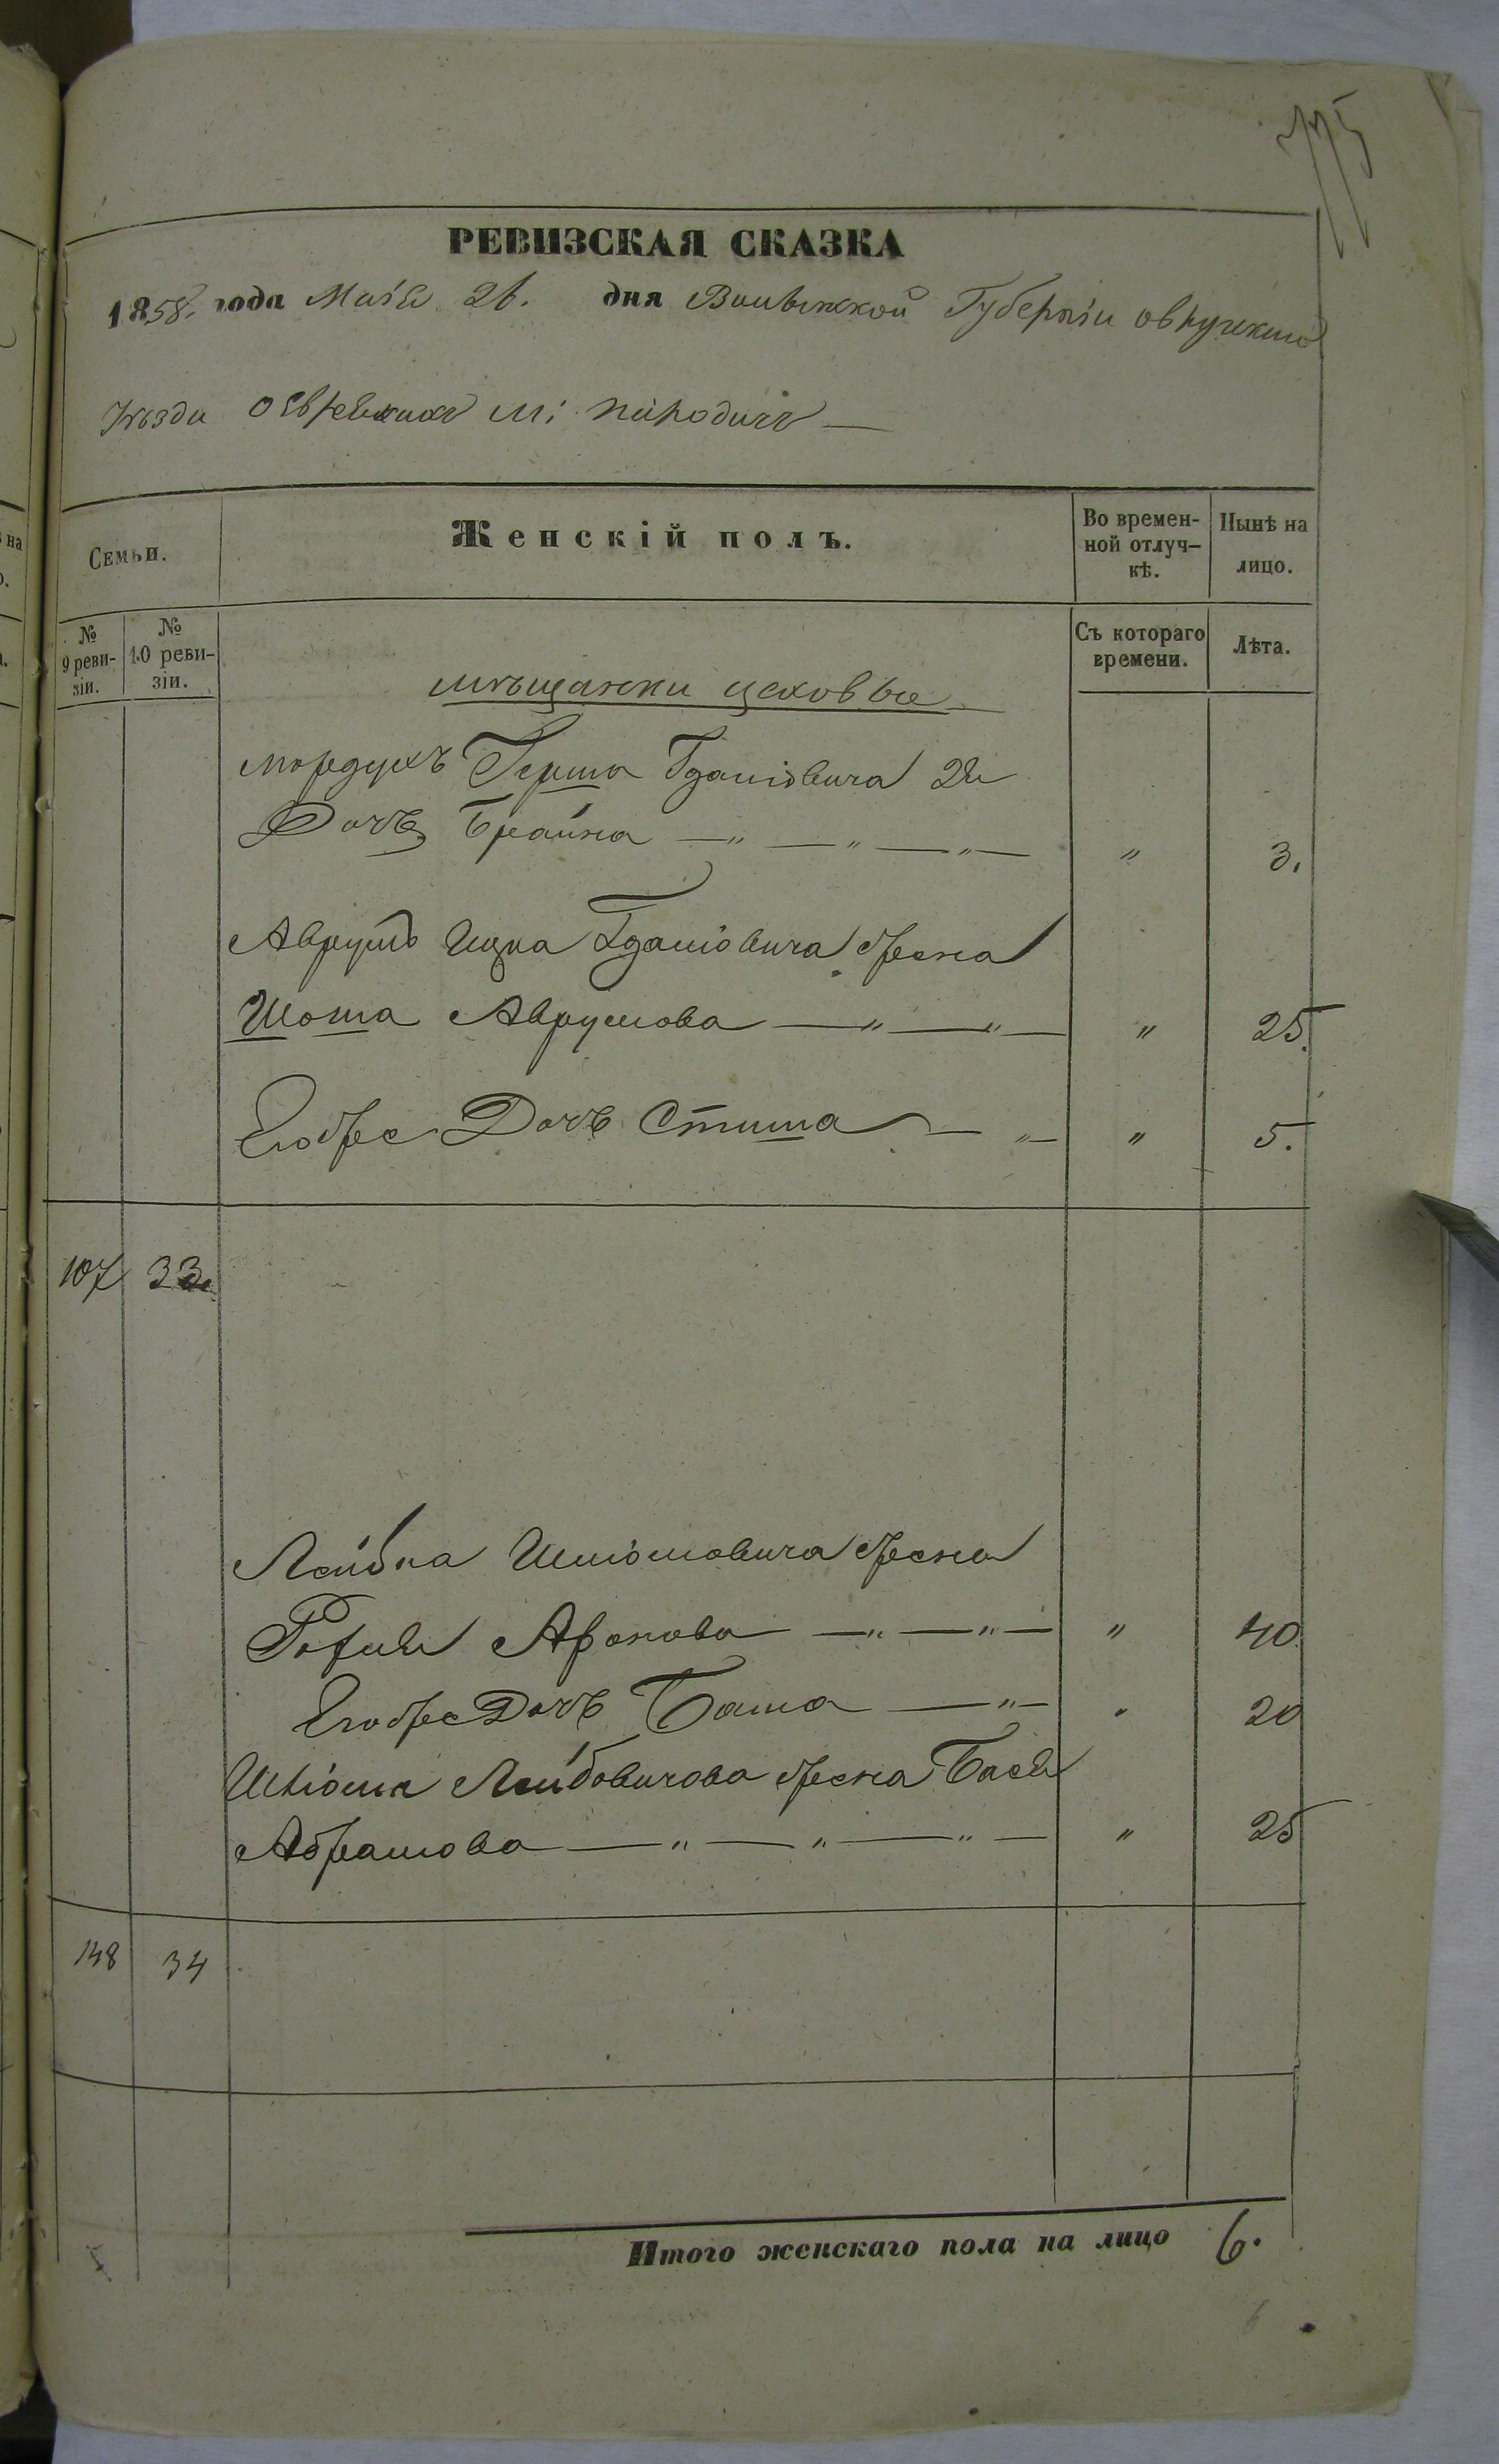 775
РЕВИЗСКАЯ СКАЗКА
1858. года Маія 26. дня Волынской Губерніи овручкаго
уѣзда о Евреяхъ м: народичъ —
Семьи.
Женскій полъ.
Во времен-
ной отлуч-
кѣ.
Нынѣ на
лицо.
№
9 реви-
зіи.
№
10 реви-
зіи.
Съ котораго
времени.
Лѣта.
мѣщанки цеховые
мордухъ Герша Гдаліовича 2я
Дочь Брайна — " — " — " — " 3.
Аврумъ Ицка Гдаліовича жена
Шома Аврумова — " — " — " 25.
Егоже Дочь Стиша — " — " 5.
107 33.
Лейбка Шліомовича жена
Рохля Аронова — " — " — " 40
Егоже Дочь Баша — " — " 20
Шліома Лейбовичова жена Бася
Абрамова — " — " — " — " 25
148 34
Итого женскаго пола на лицо 6.